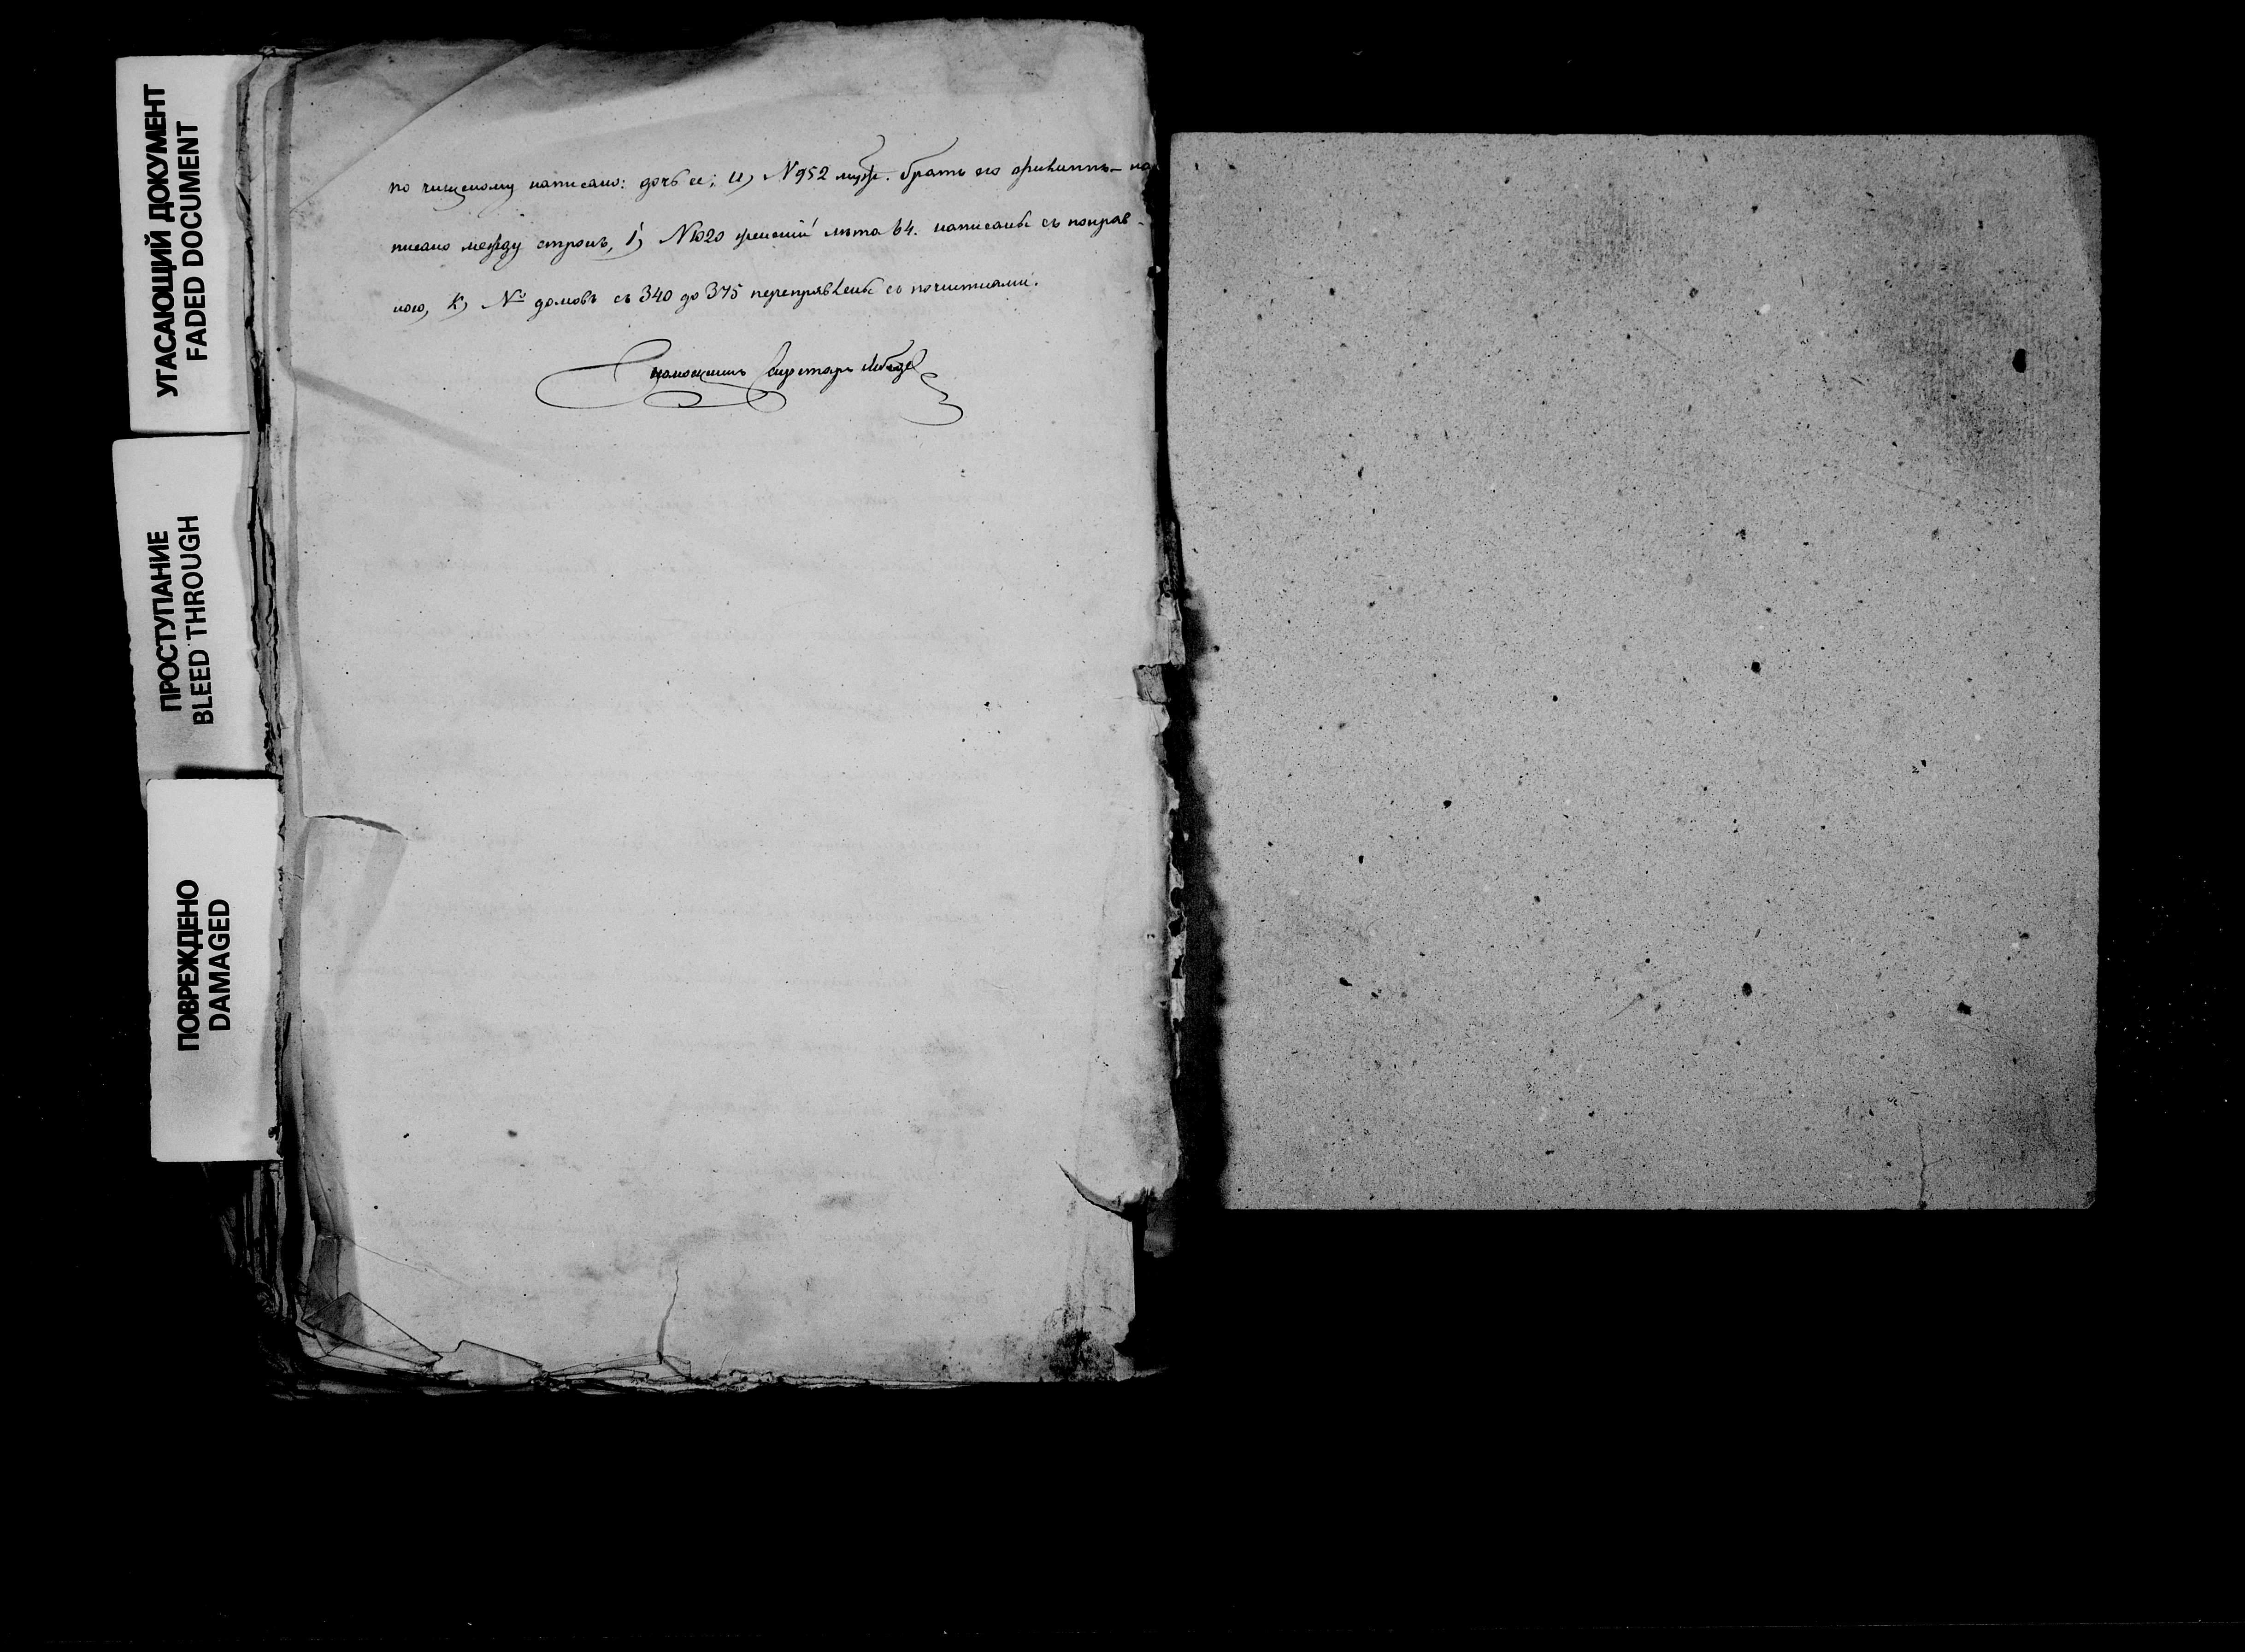 УГАСАЮЩИЙ ДОКУМЕНТ
FADED DOCUMENT
ПРОСТУПАНИЕ
BLEED THROUGH
ПОВРЕЖДЕНО
DAMAGED
по чищеному написано: дочь ее; и) N 952 муж. братъ его Филиппъ – на
писано между строкъ, і) N 1020 женской лѣта 64. написаны съ поправ-
кою, к) №. домовъ съ 340 до 375 переправлены съ почистками.
Секретарь